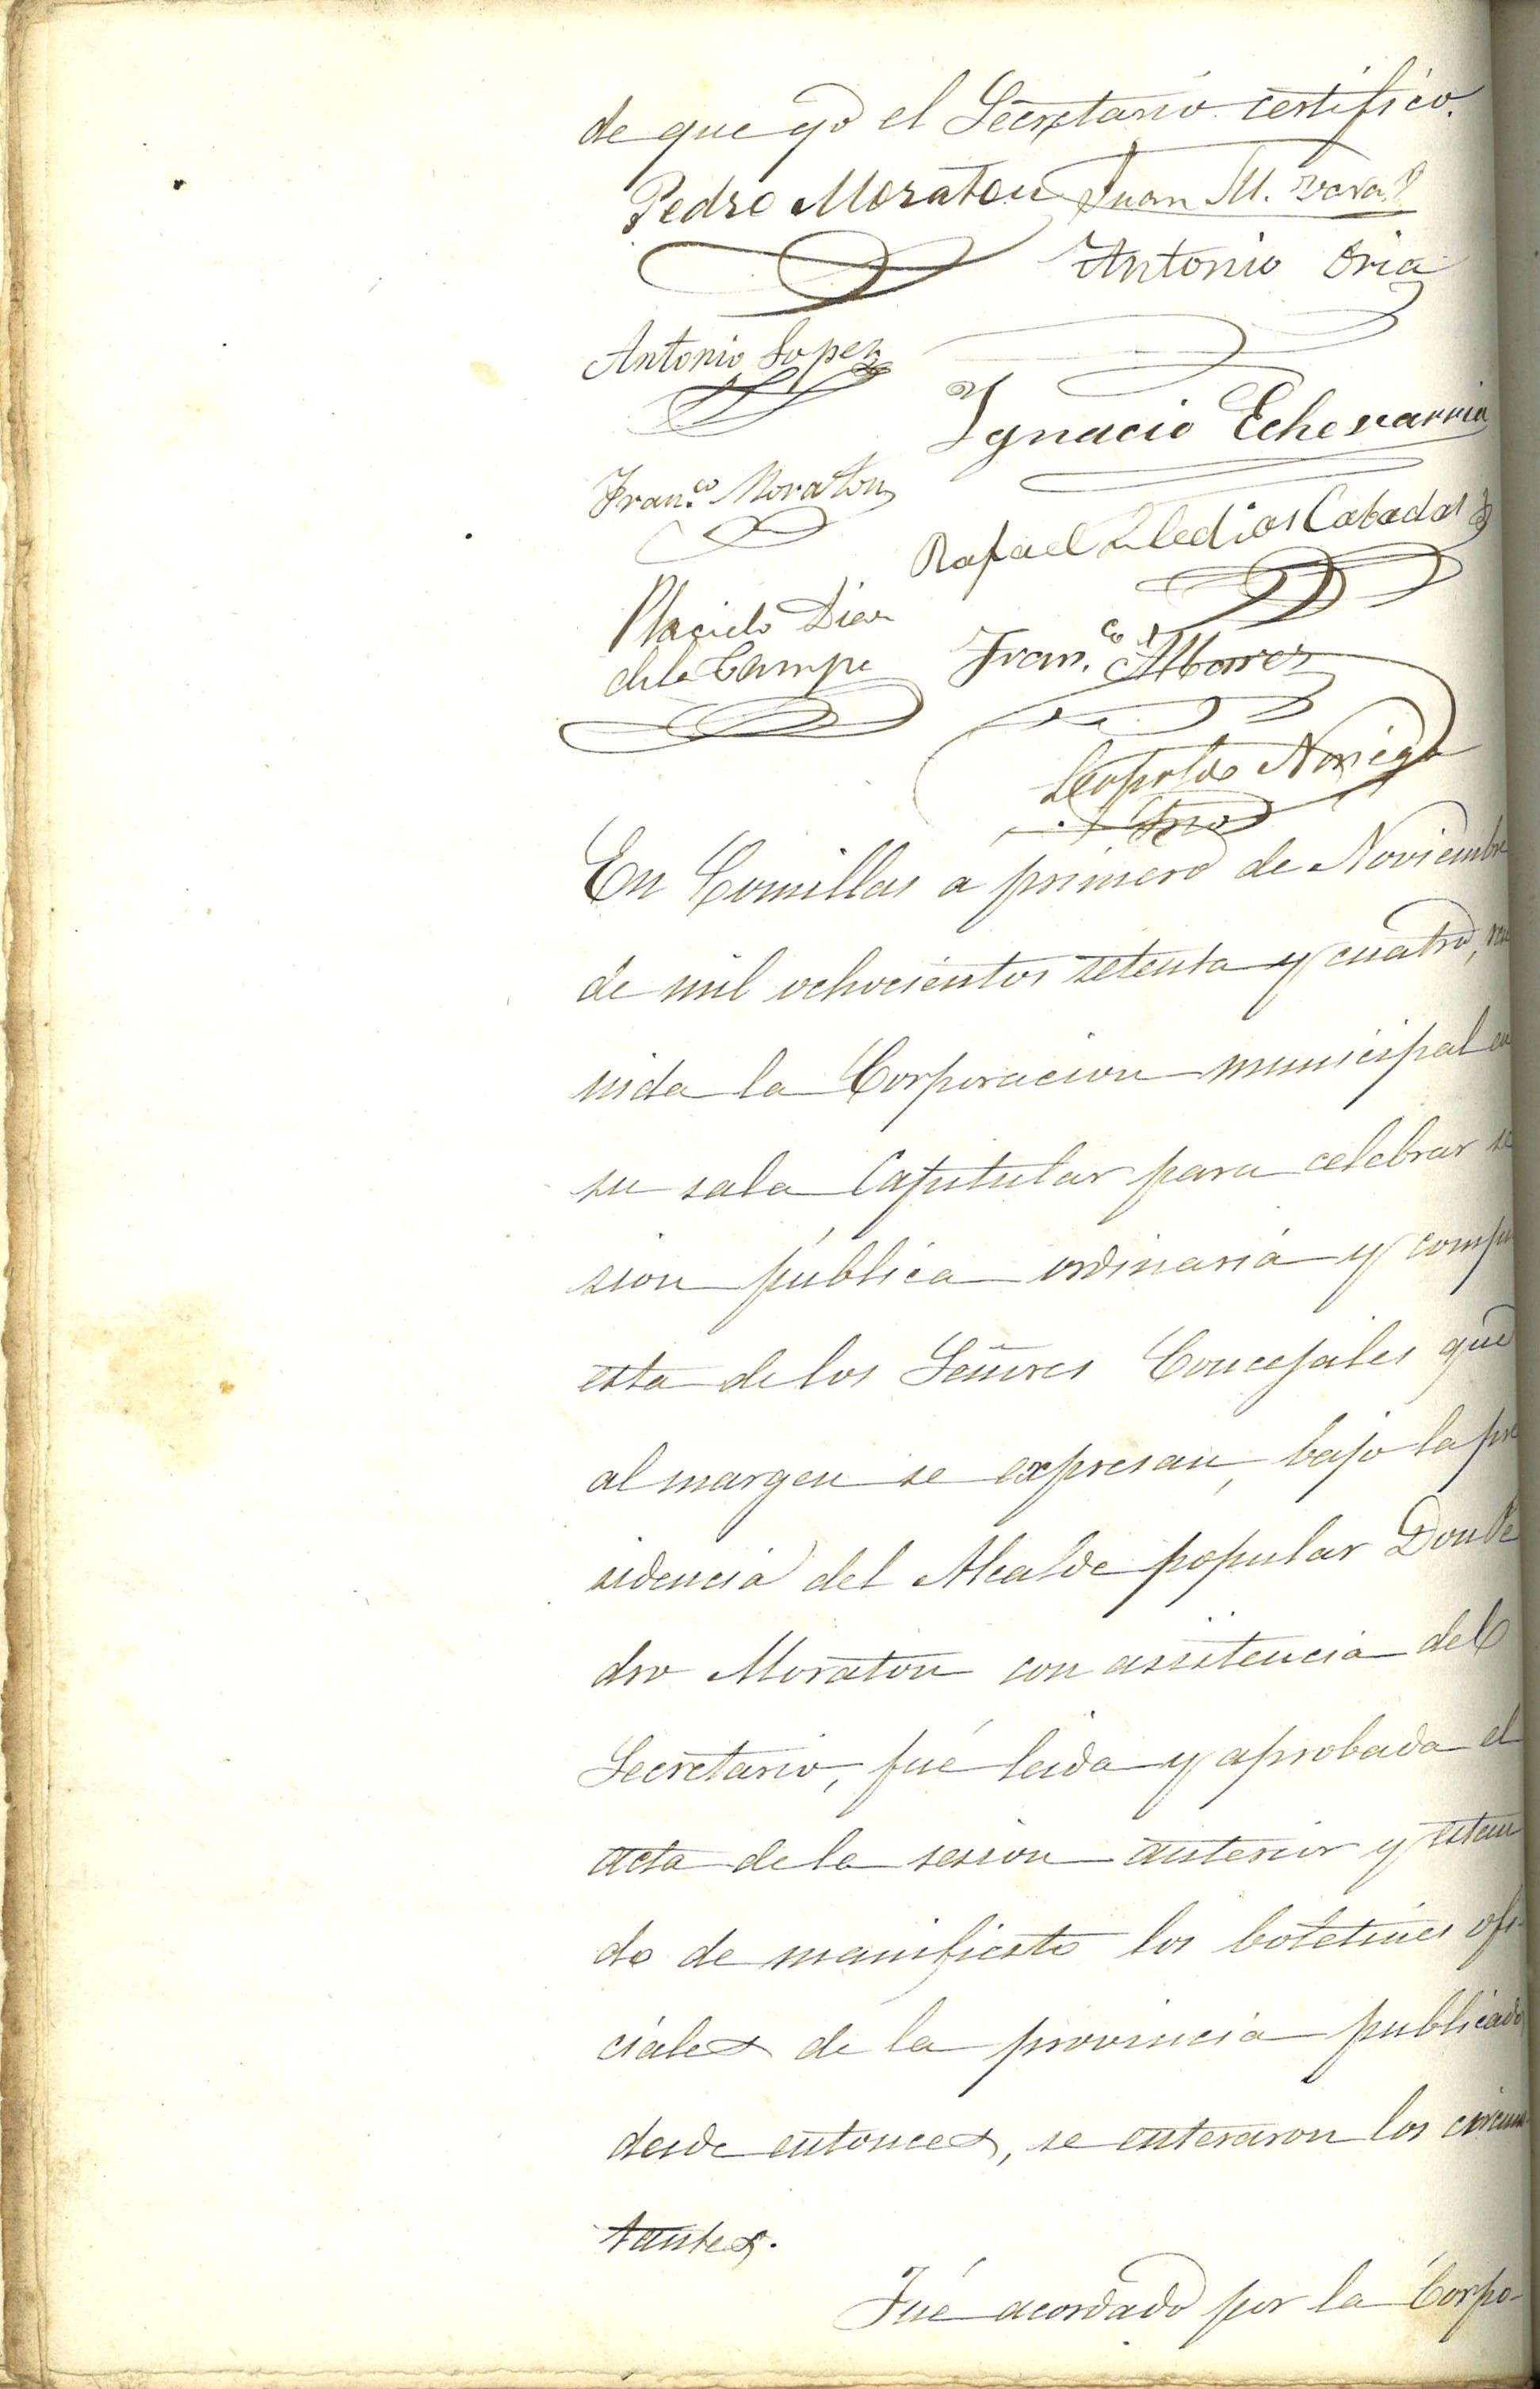 de que yo el Secretario certifico.
Pedro Moraton Juan M.
Antonio Oria
Antonio Lopez
Ygnacio Echevarria
Fran.co Moraton
Rafael Cabadas
Placido Diaz
de la Campa Fran.co Albarez
Leopoldo Noriega
Srio
En Comillas a primero de Noviembre
de mil ochocientos setenta y cuatro, reu
nida la Corporacion municipal en
su sala Capitular para celebrar se
sion pública ordinaria y compu
esta de los Señores Concejales que
al margen se expresan, bajo la pre
sidencia del Alcalde popular Don Pe
dro Moraton con asistencia del
Secretario, fué leida y aprobada el
acta de la sesion anterior y estan
do de manifiesto los boletines ofi-
ciales de la provincia publicados
desde entonces, se enteraron los circuns-
tantes.
Fué acordado por la Corpo-